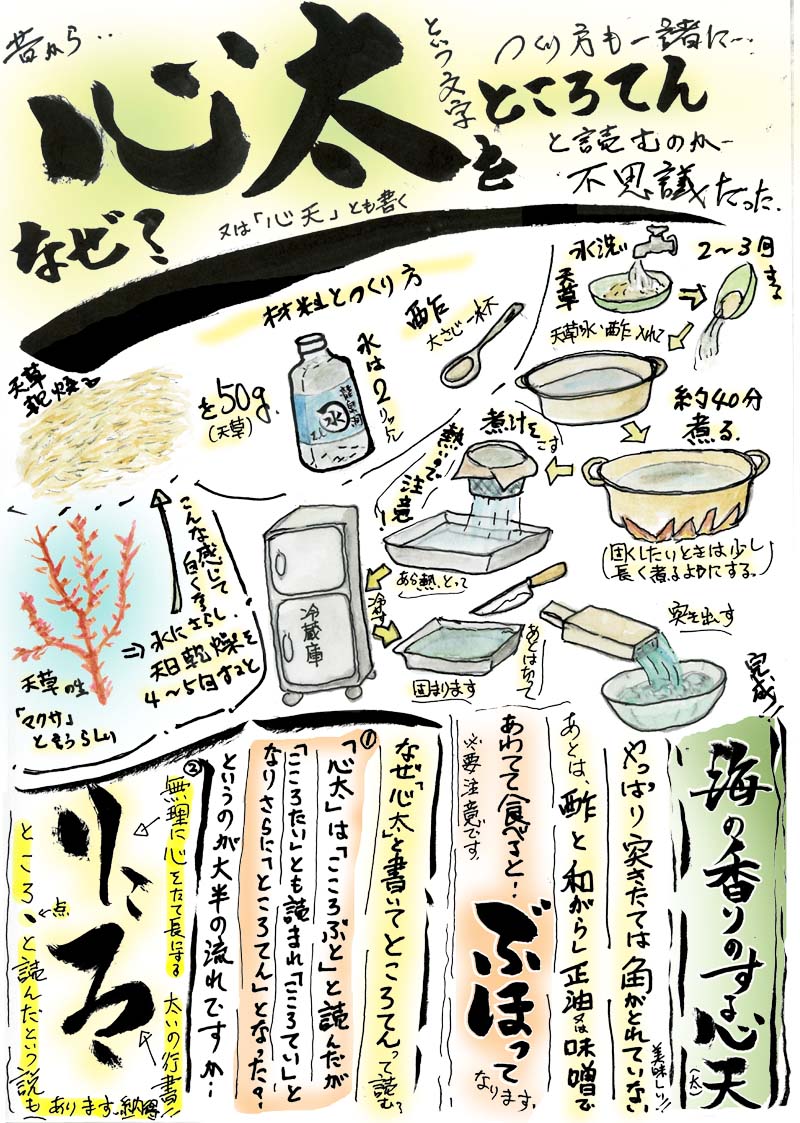 昔から・・
心太
という文字
を
つくり方も一諸に…
ところてん
と読むのか
不思議だった.
なぜ?
又は「心天」とも書く
材料とつくり方
天草
乾燥
を50g.
(天草)
水
水は2リットル
酢
大さじ一杯
水洗い
2〜3回
する
天草
天草水・酢 入れて
約40分
煮る.
固くしたいときは少し
長く煮るようにする.
煮汁をこす
熱いので注意!
あら熱とって
冷蔵庫
冷やす
固まります
あとは切って
突き出す
完成!!
天草の生
「マクサ」
ともうらしい
こんな感じで
白くなる
⇒水にさらし
天日乾燥を
4〜5回すると
海の香りのする心天
(太)
やっぱり突きたては角がとれていない
美味しい!!
あとは、酢と和がらし正油又は味噌で
あわてて食べると!
※要注意です.
ぶほって
なります.
なぜ「心太」と書いてところてんって読む?
①
「心太」は「こころぶと」と読んだが
「こころたい」とも読まれ「こころてい」と
なりさらに「ところてん」となった?
というのが大半の流れですか…
②
無理に心をたて長にする 太いの行書
点
ところ、と読んだという説も
あります.納得!!